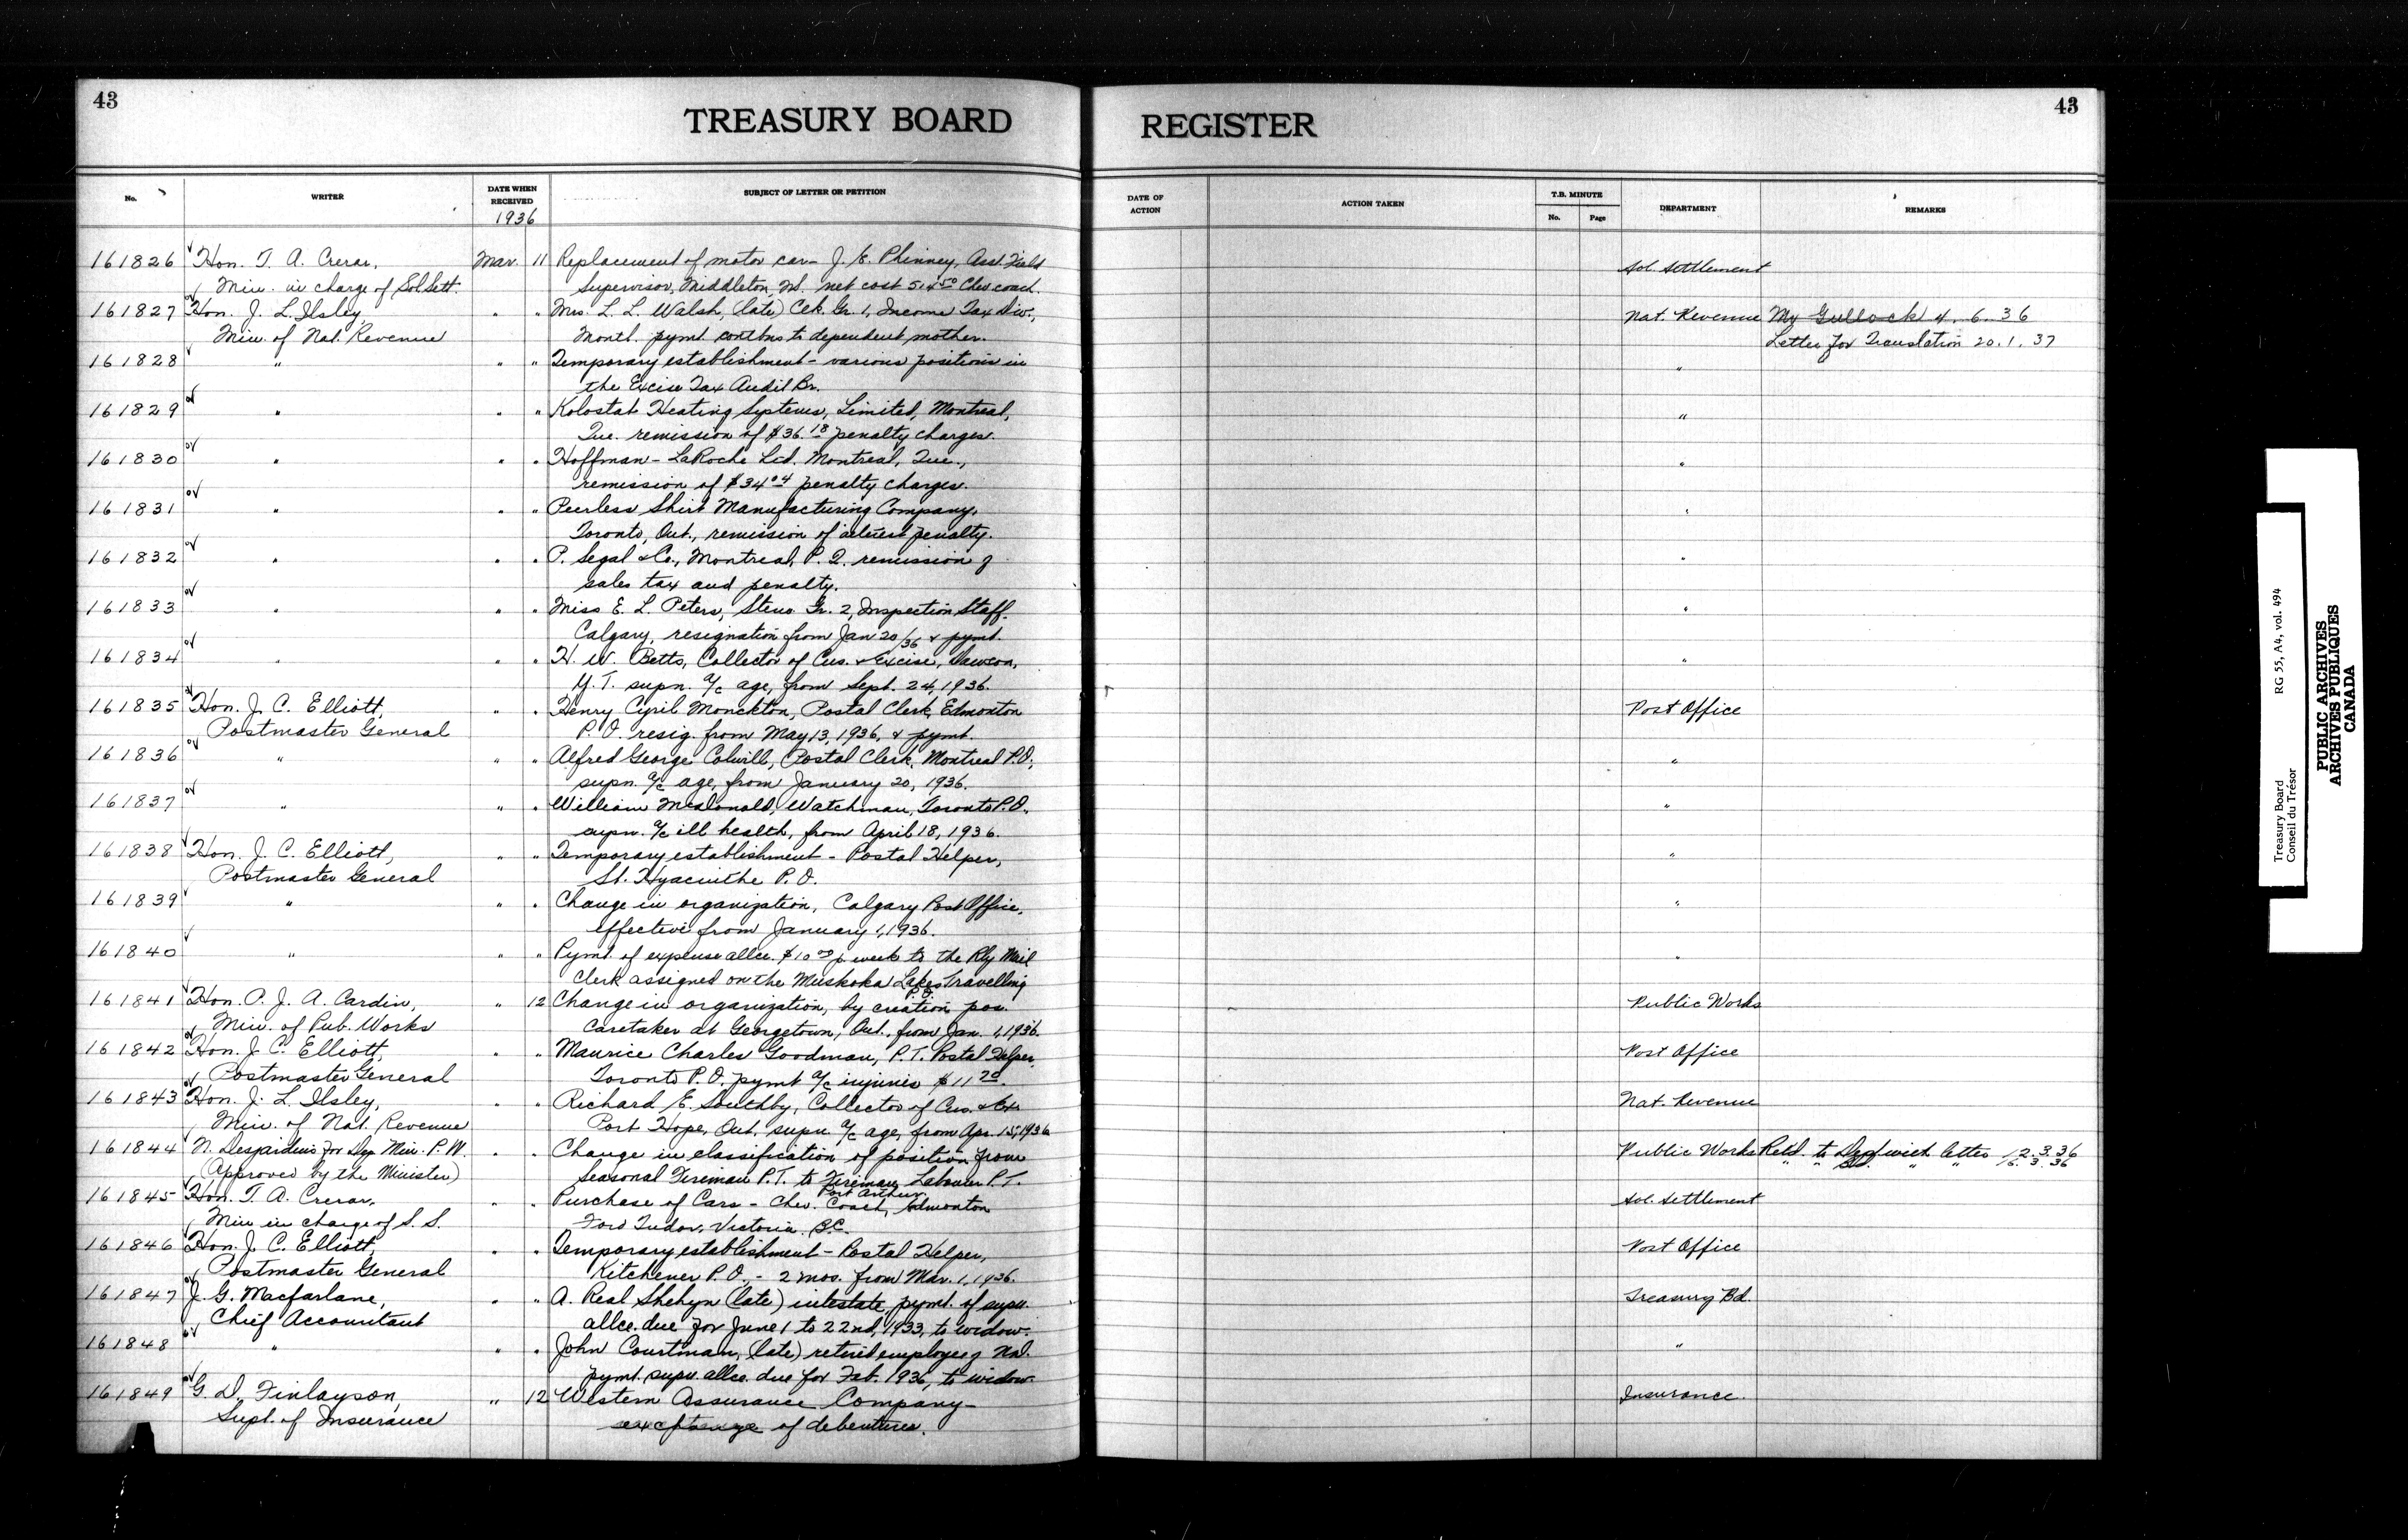 43
TREASURY BOARD
REGISTER
43
No.
WRITER
DATE WHEN RECEIVED
1936
SUBJECT OF LETTER OR PETITION
DATE OF ACTION
ACTION TAKEN
T.B. MINUTE
No.
Page
DEPARTMENT
REMARKS
161826 Hon. T. A. Crerar, Mar. 11 Replacement of motor car - J. E. Phinney, Asst. Field Sol. Settlement
Min. in charge of Sol. Sett. Supervisor, Middleton, N.S. net cost 514.50 Chev coach.
161827 Hon. J. L. Ilsley, " " Mrs. L. L. Walsh, (late) Clk. Gr. 1, Income Tax Div., Nat. Revenue My Gullock 4. 6. 36
Min. of Nat. Revenue Month. pymt. contbns to dependent mother. Letter for Translation 20. 1. 37
161828 " " " Temporary establishment - various positions in "
the Excise Tax Audit Br.
161829 " " " Kolostat Heating Systems, Limited, Montreal, "
Que. remission of $36.18 penalty charges.
161830 " " " Hoffman - LaRoche Ltd. Montreal, Que., "
remission of $34.04 penalty charges.
161831 " " " Peerless Shirt Manufacturing Company, "
Toronto, Ont., remission of interest penalty.
161832 " " " P. Segal & Co., Montreal, P. Q. remission of "
sales tax and penalty.
161833 " " " Miss E. L. Peters, Steno. Gr. 2, Inspection Staff. "
Calgary, resignation from Jan 20/36 & pymt.
161834 " " " H. W. Betts, Collector of Cus. & Excise, Dawson, "
Y. T. supn. a/c age, from Sept. 24, 1936.
161835 Hon. J. C. Elliott, " " Henry Cyril Monckton, Postal Clerk, Edmonton Post Office
Postmaster General P. O. resig. from May 13, 1936, & pymt.
161836 " " " Alfred George Colwill, Postal Clerk, Montreal P.O., "
supn. a/c age, from January 20, 1936.
161837 " " " William McDonald, Watchman, Toronto P.O. "
supn. a/c ill health, from April 18, 1936.
161838 Hon. J. C. Elliott, " " Temporary establishment - Postal Helper, "
Postmaster General St. Hyacinthe P. O.
161839 " " " Change in organization, Calgary Post Office, "
effective from January 1, 1936.
161840 " " " Pymt. of expense allce. $10.00 p week to the Rly Mail "
Clerk assigned on the Muskoka Lakes Travelling P.O.
161841 Hon. P. J. A. Cardin, " 12 Change in organization, by creation pos. Public Works
Min. of Pub. Works Caretaker at Georgetown, Ont., from Jan. 1, 1936.
161842 Hon. J. C. Elliott, " " Maurice Charles Goodman, P.T. Postal Helper, Post Office
Postmaster General Toronto P. O. pymt a/c injuries $11.20.
161843 Hon. J. L. Ilsley, " " Richard E. Southby, Collector of Cus. & Ex. Nat. Revenue
Min. of Nat. Revenue Port Hope, Ont. supn. a/c age, from Apr. 15, 1936
161844 N. Desjardins for Dep. Min. P. W. " " Change in classification of position from Public Works Retd. to Dept with letter 12. 3. 36
(Approved by the Minister) Seasonal Fireman P.T. to Fireman Labourer P.T. Port Arthur " " " " 16. 3. 36
161845 Hon. T. A. Crerar, " " Purchase of Cars - Chev. Coach, Edmonton Sol. Settlement
Min in charge of S. S. Ford Tudor, Victoria B.C.
161846 Hon. J. C. Elliott, " " Temporary establishment - Postal Helper, Post Office
Postmaster General Kitchener P. O. - 2 mos. from Mar. 1, 1936.
161847 J. G. Macfarlane, " " A. Real Shehyn (late) intestate, pymt. of supn. Treasury Bd.
Chief Accountant allce. due for June 1 to 22nd, 1933, to widow.
161848 " " " John Courtman, (late) retired employee of Nd. "
pymt. supn. allce. due for Feb. 1936, to widow
161849 G. D. Finlayson, " 12 Western Assurance Company - Insurance.
Supt. of Insurance exchange of debentures.
Treasury Board
Conseil du Trésor
RG 55, A4, vol. 494
PUBLIC ARCHIVES
ARCHIVES PUBLIQUES
CANADA